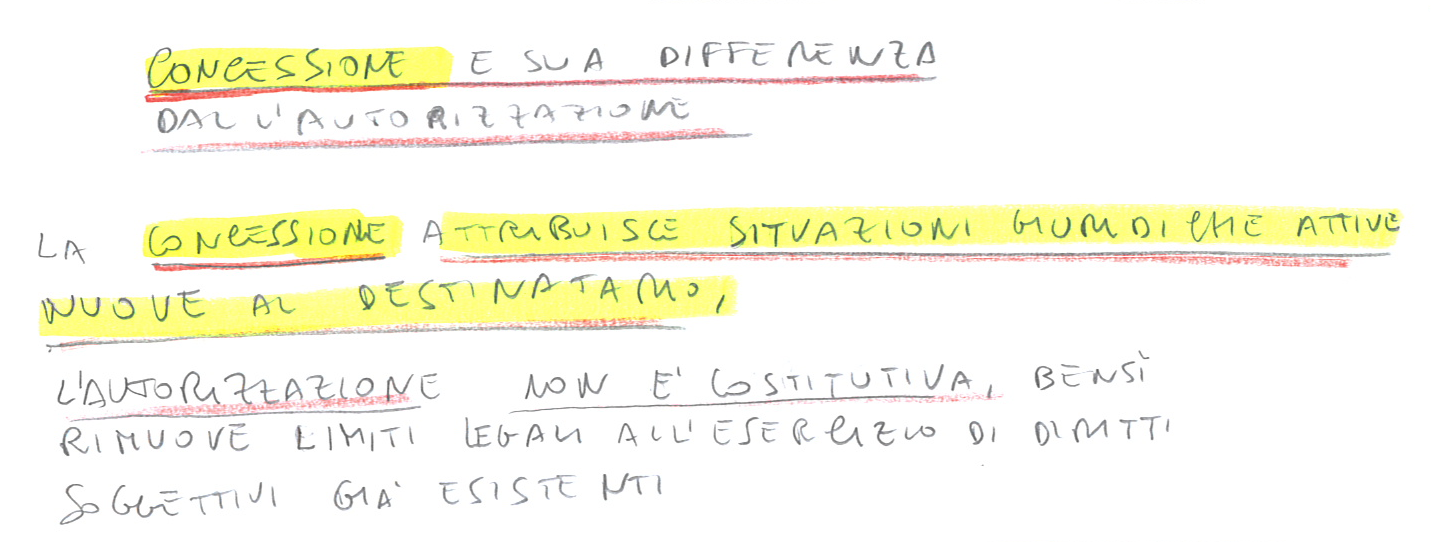 CONCESSIONE E SUA DIFFERENZA
DALL'AUTORIZZAZIONE
LA CONCESSIONE ATTRIBUISCE SITUAZIONI GIURIDICHE ATTIVE
NUOVE AL DESTINATARIO,
L'AUTORIZZAZIONE NON E' COSTITUTIVA, BENSÌ
RIMUOVE LIMITI LEGALI ALL'ESERCIZIO DI DIRITTI
SOGGETTIVI GIA' ESISTENTI